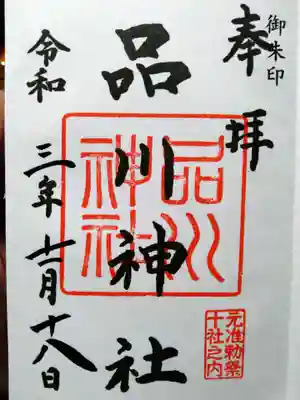 御朱印
奉拝
品川神社
令和三年十一月十八日
品川神社
元准勅祭
十社之内